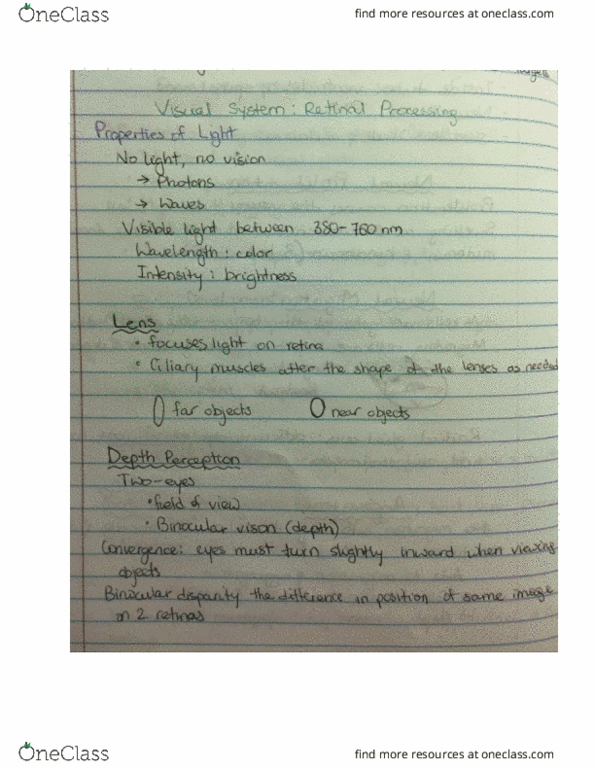 OneClass
find more resources at oneclass.com
images
Visual System: Retinal Processing
Properties of Light
No light, no vision
→ Photons
→ Waves
Visible light between 380-760 nm
Wavelength: color
Intensity: brightness
Lens
• focuses light on retina
• Ciliary muscles alter the shape of the lenses as needed
far objects near objects
Depth Perception
Two-eyes
• field of view
• Binocular vison (depth)
Convergence: eyes must turn slightly inward when viewing
objects
Binocular disparity the difference in position of same image
on 2 retinas
OneClass
find more resources at oneclass.com